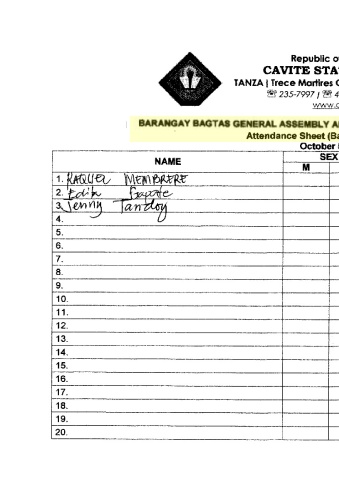 Republic o
CAVITE STA
TANZA | Trece Martires C
☏ 235-7997 | ☏ 4
www.c
BARANGAY BAGTAS GENERAL ASSEMBLY A
Attendance Sheet (Ba
October
NAME
SEX
M
1. RAQUEL MEMBRERE
2. Edik
3. Jenny Tandoy
4.
5.
6.
7.
8.
9.
10.
11.
12.
13.
14.
15.
16.
17.
18.
19.
20.